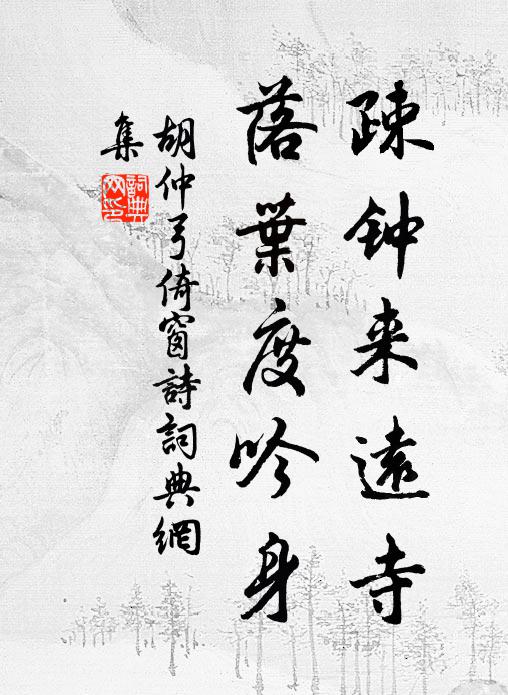 疎钟来遠寺
落葉度吟身
胡仲弓倚窗詩詞典網
集
詞典网印